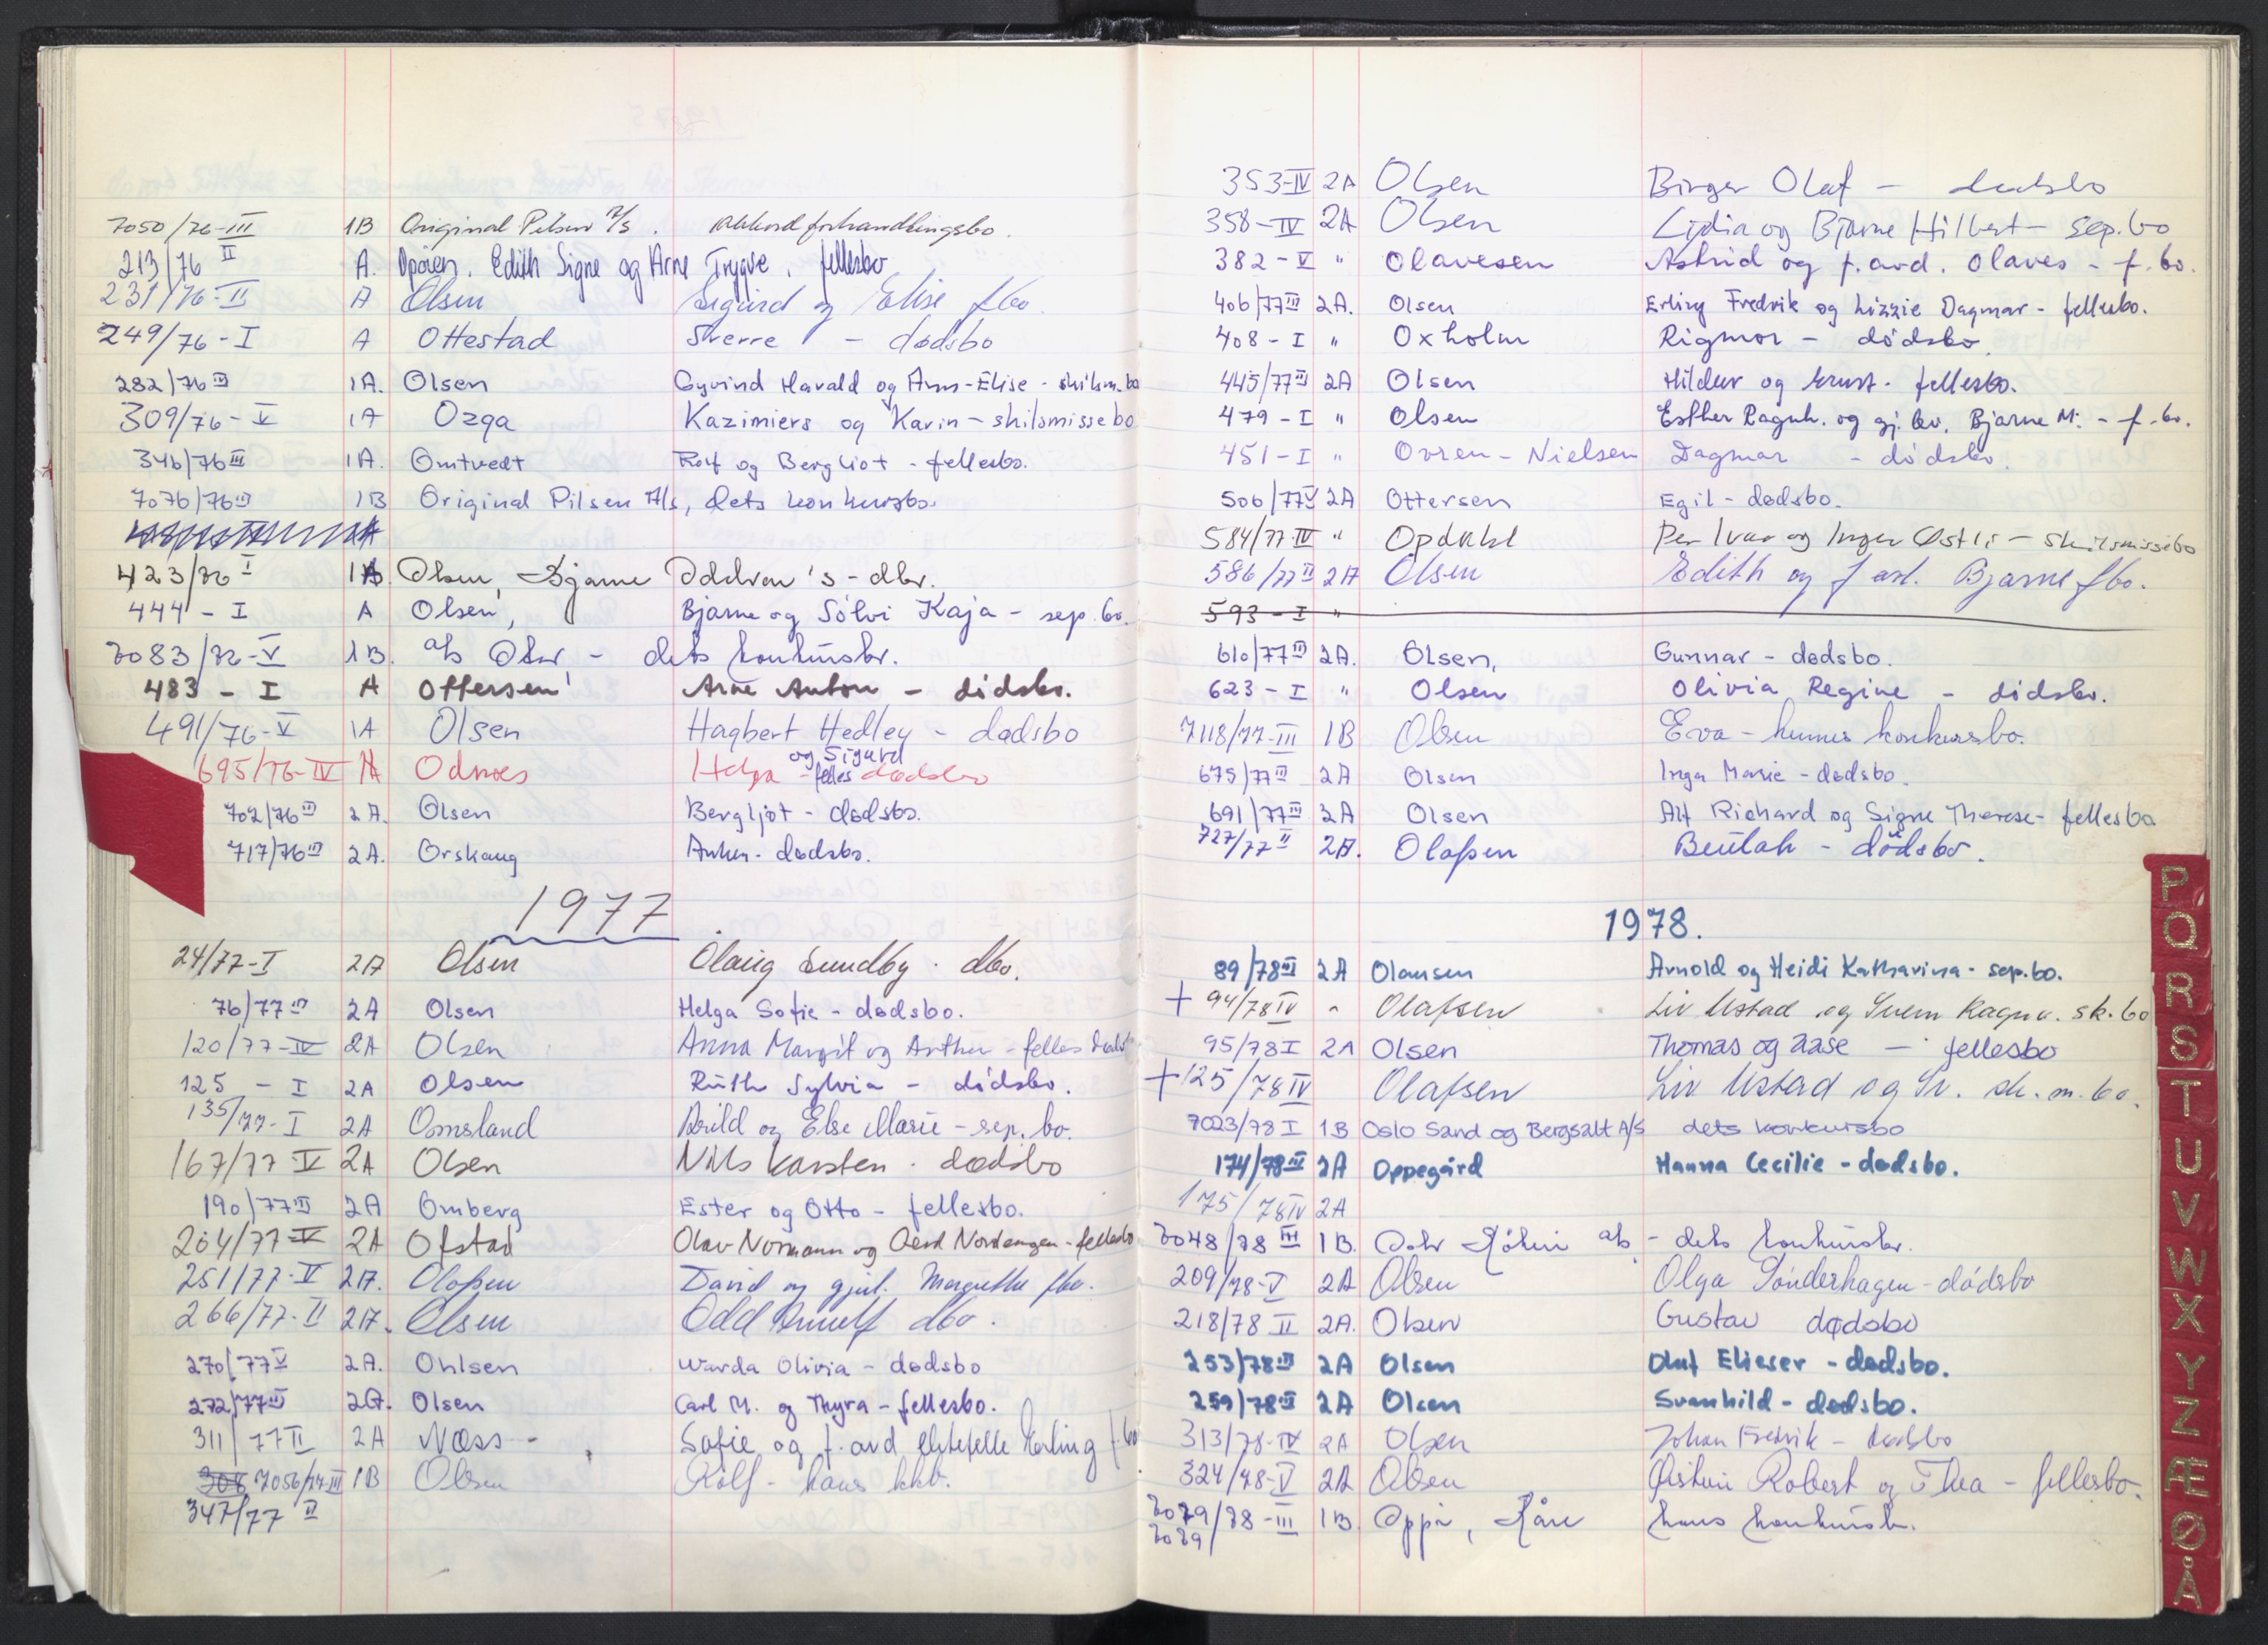 7050/76-III 1B Original Pilsen A/S. Akkordforhandlingsbo.
213/76 II A. Opøien, Edith Signe og Arne Trygve, fellesbo
231/76-II A Olsen Sigurd og Elise fbo.
249/76-I A Ottestad Sverre - dødsbo
282/76 IV 1A. Olsen Øyvind Harald og Ann-Elise - skilsm.bo
309/76-V 1A Ozga Kazimiers og Karin - skilsmissebo
346/76 III 1A. Omtvedt Rolf og Bergliot - fellesbo.
7076/76 III 1B Original Pilsen A/s, dets konkursbo.
423/76 I 1A. Olsen, Bjarne Oddvar's - dbo.
444 - I A Olsen, Bjarne og Sólvi Kaja - sep.bo.
7083/76-V 1B. a/s Oker - dets konkursbo.
483 - I A Ottersen Arne Anton - dødsbo.
491/76-V 1A Olsen Hagbert Hedley - dødsbo
695/76-IV A Odnæs Helga og Sigurd - felles dødsbo
702/76 III 2A. Olsen Bergljot - dødsbo.
717/76 III 2A. Orskaug Anker - dødsbo.
1977
24/77-I 2A Olsen Olaug Sundby. dbo.
76/77 III 2A Olsen Helga Sofie - dødsbo.
120/77-IV 2A Olsen Anna Margit og Arthur - felles dødsb
125 - I 2A Olsen Ruth Sylvia - dødsbo.
135/77-I 2A Omsland Arild og Else Marie - sep. bo.
167/77 V 2A Olsen Nils Karsten - dødsbo
190/77 III 2A Omberg Ester og Otto - fellesbo.
204/77-V 2A Ofstad Olav Normann og Gerd Nordengen - fellesbo
251/77-V 2A. Olafsen David og gjenl. Margrethe fbo.
266/77-II 2A. Olsen Odd Arnulf dbo.
270/77 V 2A. Ohlsen Warda Olivia - dødsbo
272/77 III 2A. Olsen Carl M. og Thyra - fellesbo.
311/77 II 2A Næss - Sofie og f. avd ektefelle Erling f.bo
308 7056/77-III 1B Olsen Rolf - hans kkb.
347/77 II
353-IV 2A Olsen Birger Olaf - dødsbo
358-IV 2A Olsen Lydia og Bjarne Hilbert - sep.bo
382-V " Olavesen Astrid og f. avd. Olaves - f.bo.
406/77 III 2A. Olsen Erling Fredrik og Lizzie Dagmar - fellesbo.
408 - I " Oxholm Rigmor - dødsbo.
445/77 III 2A Olsen Hildur og Ernst. fellesbo.
479 - I " Olsen Esther Ragnh. og gj. lev. Bjarne M. - f.bo.
451 - I " Ovren-Nielsen Dagmar - dødsbo.
506/77 V 2A Ottersen Egil - dødsbo.
584/77-IV " Opdahl Per Ivar og Inger Østli - Skilsmissebo
586/77 II 2A Olsen Edith og f avd. Bjarne fbo.
593 - I "
610/77 III 2A. Olsen, Gunnar - dødsbo.
623 - I " Olsen Olivia Regine - dødsbo.
7118/77-III 1B Olsen Eva - hennes konkursbo.
675/77 III 2A Olsen Inga Marie - dødsbo.
691/77 III 2A Olsen Alf Richard og Signe Therese - fellesbo
727/77 II 2A. Olafsen Beulah - dødsbo.
1978.
89/78 III 2A Olausen Arnold og Heidi Katharina - sep.bo.
+ 94/78 IV " Olafsen Liv Ustad og Svein Ragnv. sk.bo
95/78 I 2A Olsen Thomas og Aase - fellesbo
+ 125/78 IV Olafsen Liv Ustad og Sv. sk.m.bo.
7023/78 I 1B Oslo Sand og Bergsalt A/S dets konkursbo
174/78 III 2A Oppegård Hanna Cecilie - dødsbo.
175/78 IV 2A
7048/78 III 1B. a/s - dets konkursbo.
209/78-V 2A Olsen Olga Sønderhagen - dødsbo
218/78 II 2A. Olsen Gustav dødsbo
253/78 III 2A Olsen Oluf Elieser - dødsbo.
259/78 III 2A Olsen Svanhild - dødsbo.
313/78-IV 2A Olsen Johan Fredrik - dødsbo
324/78-V 2A Olsen Øistein Robert og Thea - fellesbo.
7079/78-III 1B. Oppi, Kåre hans konkursbo.
7079
P
Q
R
S
T
U
V
W
X
Y
Z
Æ
Ø
Å